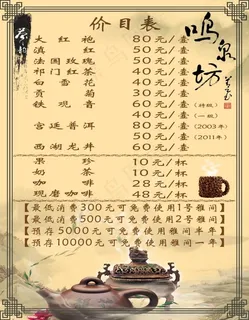 茶韵
价目表
鸣泉坊
大红袍 80元/壶
滇红 50元/壶
法国玫瑰 50元/壶
祁门红茶 60元/壶
白雪花 40元/壶
贡菊 30元/壶
铁观音 60元/壶(特级)
40元/壶(一级)
宫廷普洱 80元/壶(2003年)
60元/壶(2011年)
西湖龙井 60元/壶
果珍 10元/杯
奶茶 10元/杯
咖啡 28元/杯
现磨咖啡 48元/杯
【最低消费300元可免费使用1号雅间】
【最低消费500元可免费使用2号雅间】
【预存5000元可免费使用雅间半年】
【预存10000元可免费使用雅间一年】